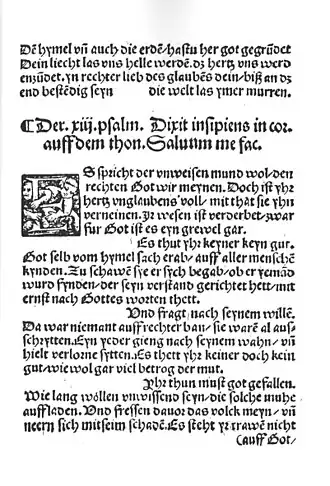 Dē hymel vñ auch die erden/ hastu her got gegründet
Dein liecht las vns helle werden. dz hertz vns werd
enzündet. yn rechter lieb des glaubens dein/ biß an dz
end bestēdig seyn die welt las ymer murren.
¶ Der. xiij. psalm. Dixit insipiens in cor.
auff dem thon. Saluum me fac.
ES spricht der vnweisen mund wol/ den
rechten Got wir meynen. Doch ist yhr
hertz vnglaubens voll/ mit that sie yhn
verneinen. Ir wesen ist verderbet zwar
für Got ist es eyn grewel gar.
Es thut yhr keyner keyn gut.
Got selb vom hymel sach erab/ auff aller menschē
kynden. Zu schawen sye er sych begab/ ob er yemād
wurd fynden/ der seyn verstand gerichtet hett/ mit
ernst nach Gottes worten thett.
Vnd fragt nach seynem willē.
Da war niemant auff rechter ban/ sie warē al aus-
schrytten. Eyn yeder gieng nach seynem wahn/ vñ
hielt verlorne sytten. Es thett yhr keiner doch kein
gut/ wie wol gar viel betrog der mut.
Yhr thun must got gefallen.
Wie lang wöllen vnwissend seyn/ die solche muhe
auffladen. Vnd fressen dauor das volck meyn/ vñ
neern sich mit seim schadē. Es steht yr trawen nicht
(auff Got/